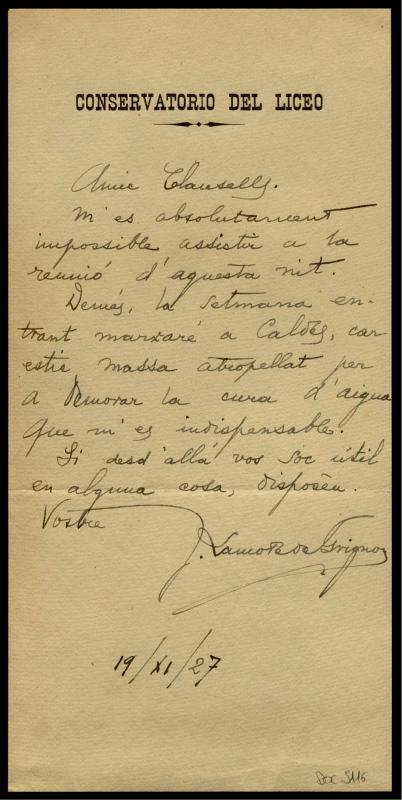 CONSERVATORIO DEL LICEO
Amic Clausells.
M'es absolutament
impossible assistir a la
reunió d'aquesta nit.
Demés, la setmana en-
trant marxaré a Caldes, car
estic massa atropellat per
a demorar la cura d'aigua
que m'es indispensable.
Si desd'allá vos soc útil
en alguna cosa, disposèu.
Vostre
J. Lamote de Grignon
19/XI/27
Doc 5116